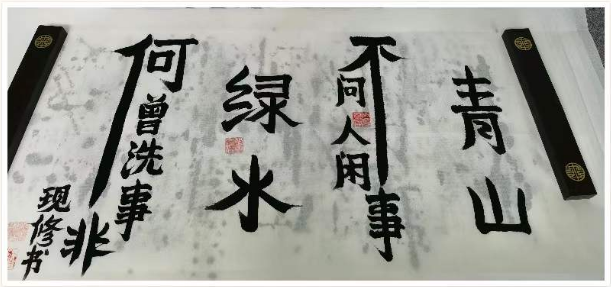 青山
不问人闲事
绿水
何曾洗事非
现修书